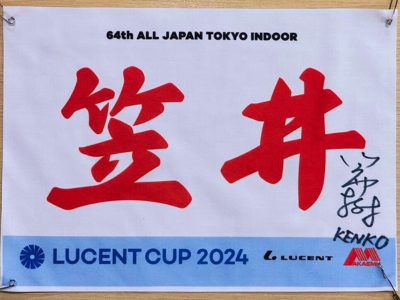 64th ALL JAPAN TOKYO INDOOR
笠井
KENKO
LUCENT CUP 2024 LUCENT AKAEMU